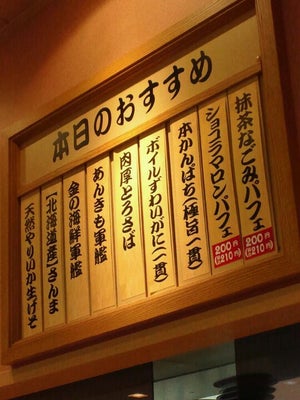 本日のおすすめ
抹茶なごみパフェ
200円
(税込210円)
ショコラマロンパフェ
200円
(税込210円)
本かんぱち(極旨一貫)
ボイルずわいがに(一貫)
肉厚とろさば
あんきも軍艦
金の海鮮軍艦
「北海道産」さんま
天然やりいか生げそ